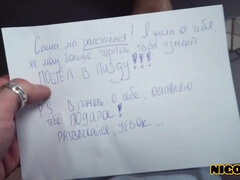 Саша, мы расстаемся! Я ушла от тебя,
не могу больше терпеть твои измены.
ПОШЁЛ В ПИЗДУ!!!
P.S. В память о себе, оставляю
тебе ПОДАРОК!
РАЗВЛЕКАЙСЯ, УЁБОК...